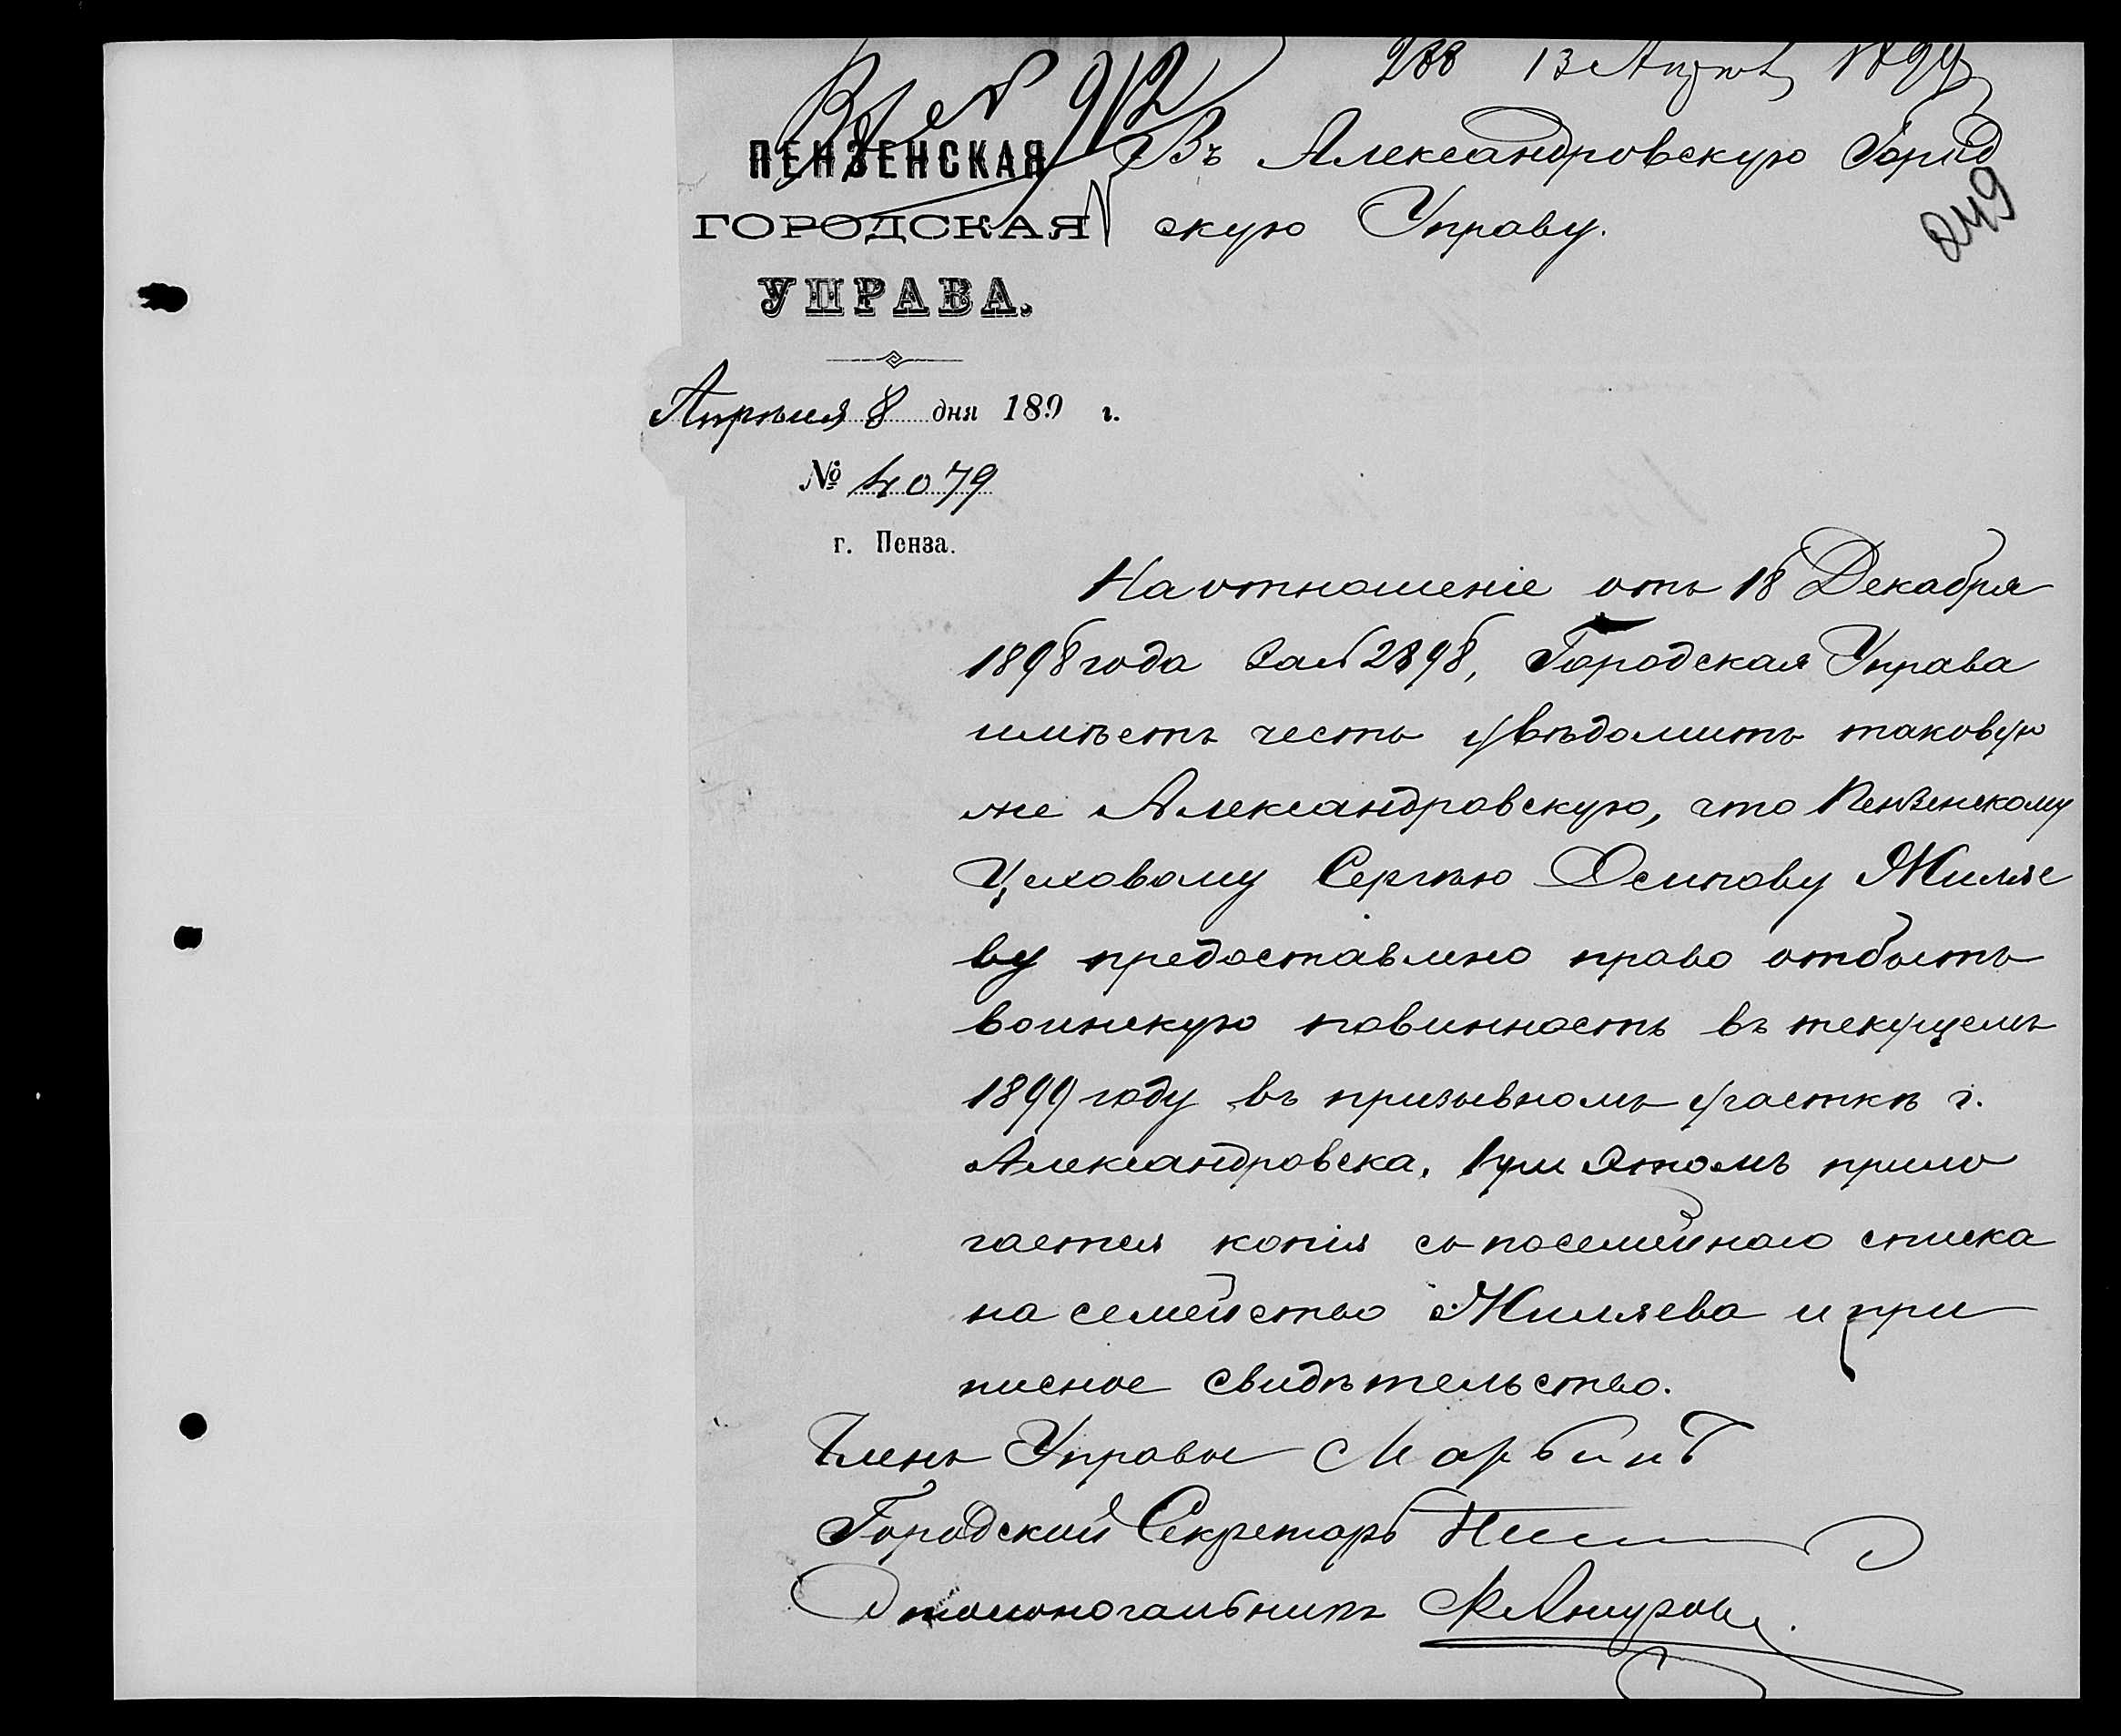 Вх № 912
288 13 Апрѣля 1899
249
ПЕНЗЕНСКАЯ
ГОРОДСКАЯ
УПРАВА.
Апрѣля 8 дня 189 г.
№ 4079
г. Пенза.
Въ Александровскую Город
скую Управу.
На отношеніе отъ 18 Декабря
1898 года за № 2898, Городская Управа
имѣетъ честь увѣдомить таковую
же Александровскую, что Пензенскому
Цеховому Сергѣю Осипову Жиляе
ву предоставлено право отбыть
воинскую повинность въ текущемъ
1899 году въ призывномъ участкѣ г.
Александровска. При этомъ прила
гается копія съ посемейнаго списка
на семейство Жиляева и при
писное свидѣтельство.
Членъ Управы
Городской Секретарь
Столоначальникъ